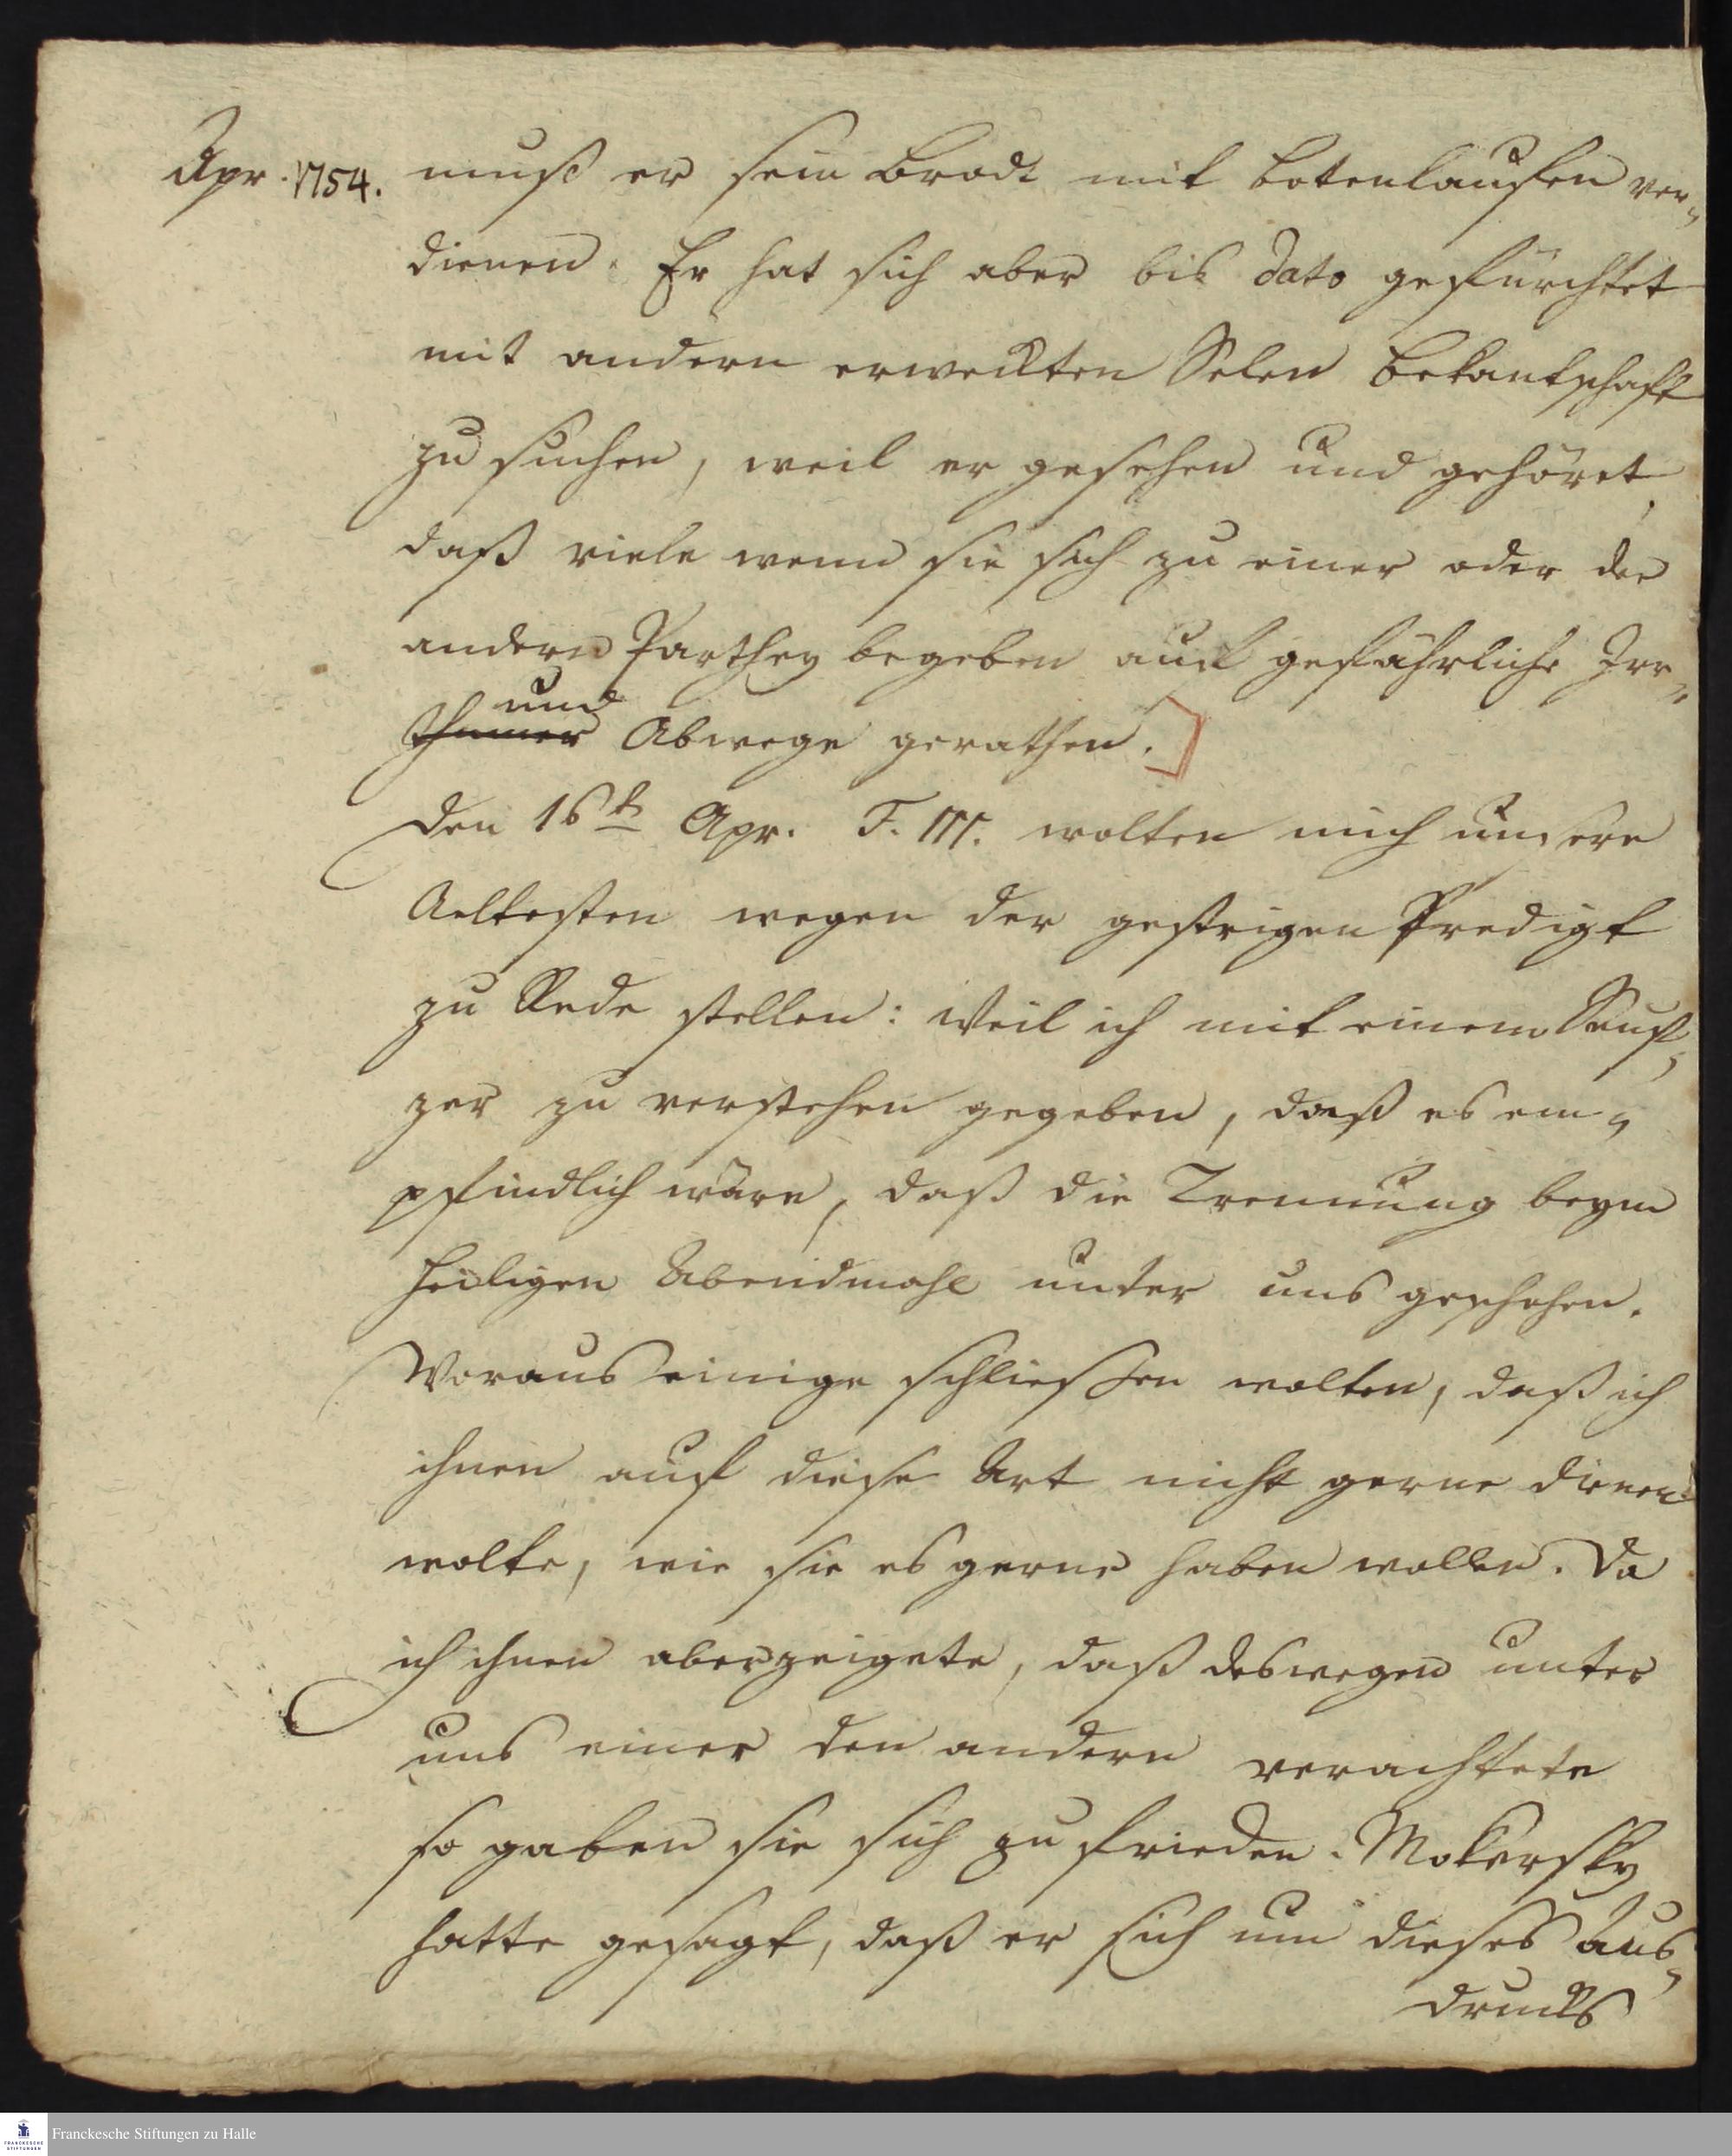 Apr. 1754.
muß er sein Brodt mit botenlaufen ver-
dienen. Er hat sich aber bis dato gefürchtet
mit andern erweckten Selen bekantschaft
zu suchen, weil er gesehen und gehöret,
daß viele wenn sie sich zu einer oder der
andern Parthey begeben auf gefährliche Irr-
und
thümer Abwege gerathen.]
Den 16t Apr. F. III. wolten mich unsere
Aeltesten wegen der gestrigen Predigt
zu Rede stellen: Weil ich mit einem Seuf-
zer zu verstehen gegeben, daß es em-
pfindlich wäre, daß die Trennung beym
heiligen Abendmahl unter uns geschehen.
Woraus einige schliessen wolten, daß ich
ihnen auf diese Art nicht gerne dienen
wolte, wie sie es gerne haben wollen. Da
ich ihnen aber zeigete, daß deswegen unter
uns einer den andern verachtete
so gaben sie sich zu frieden. Mokersky
hatte gesagt, daß er sich um dieses Aus-
drucks
Franckesche Stiftungen zu Halle
FRANCKESCHE
STIFTUNGEN